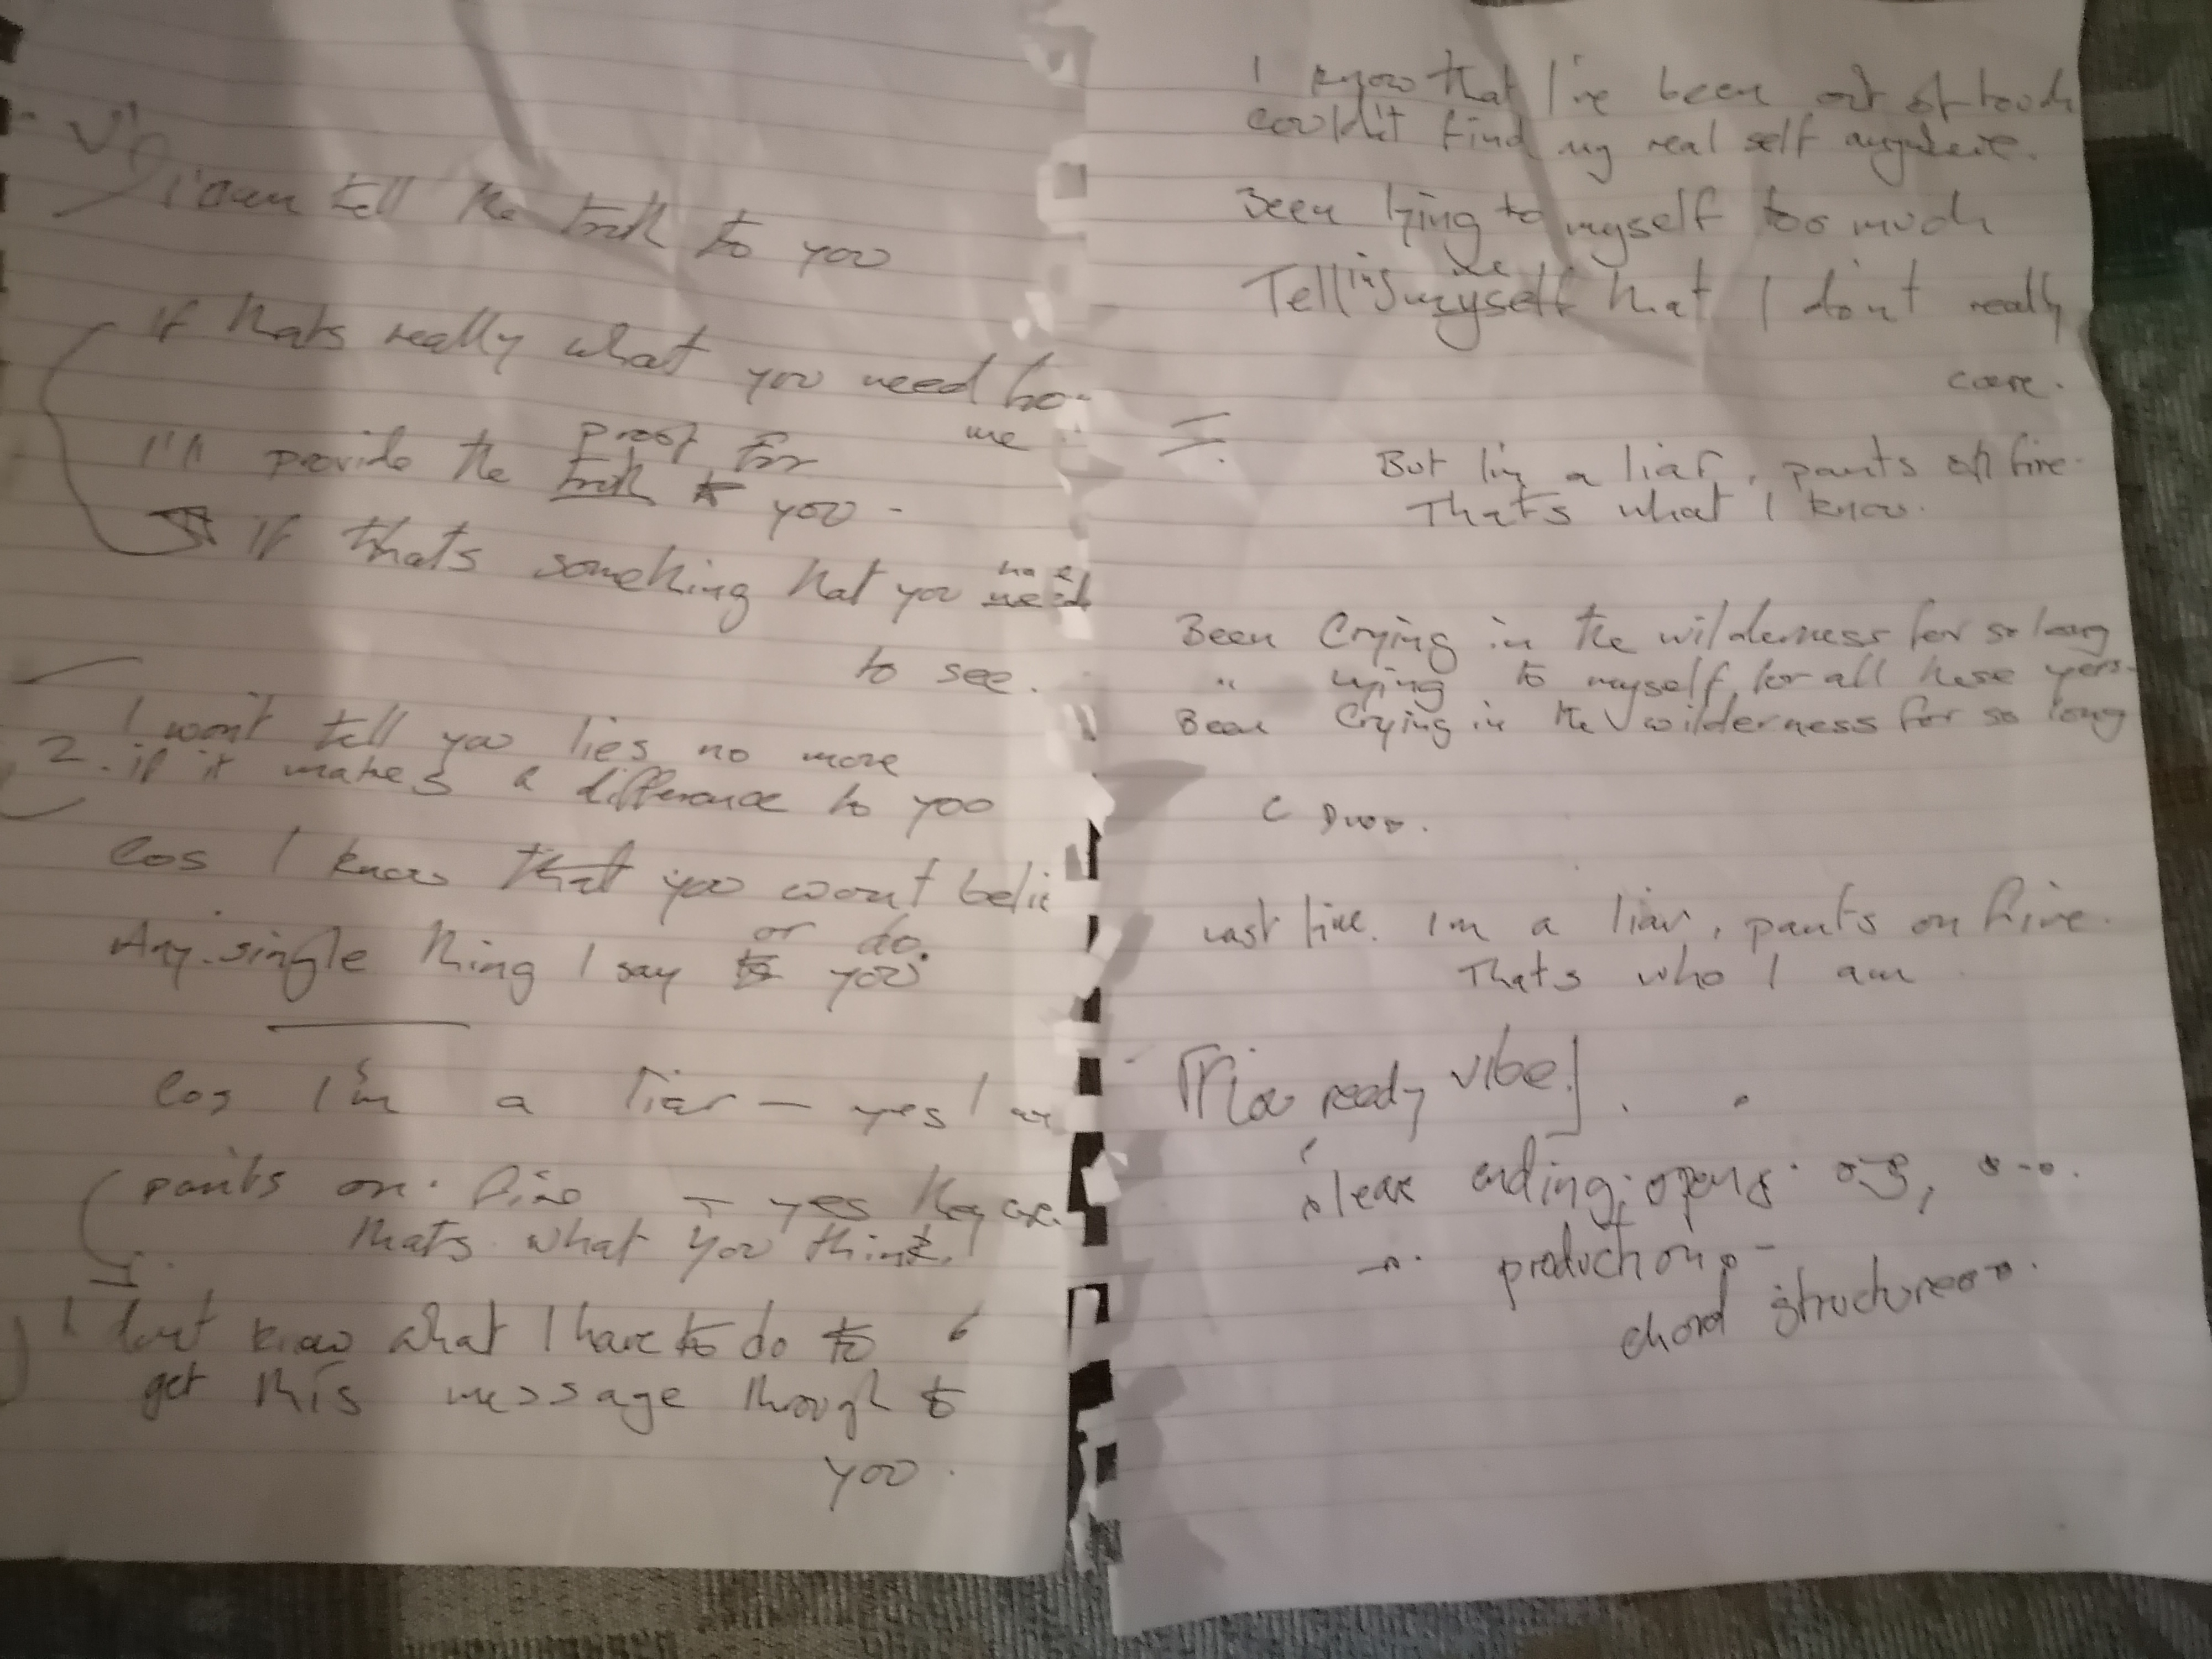 V1
I can tell the truth to you
If thats really what you need from
me
proof for
I'll provide the truth to you -
have
If that's something that you need
to see.
I won't tell you lies no more
2. if it makes a difference to you
Cos I know that you won't belie
or do.
Any single thing I say to you
Cos I'm a liar — yes I am
pants on fire — yes they are
thats what you think.
I don't know what I have to do to
get this message through to
you.
I know that I've been out of touch
couldn't find my real self anywhere.
Been lying to myself too much
me
Telling myself that I don't really
care.
But I'm a liar, pants on fire.
Thats what I know.
Been Crying in the wilderness for so long
" lying to myself for all these years
Been Crying in the wilderness for so long
C
Last line. Im a liar, pants on fire.
Thats who I am
ready vibe]
ending
production
chord structure